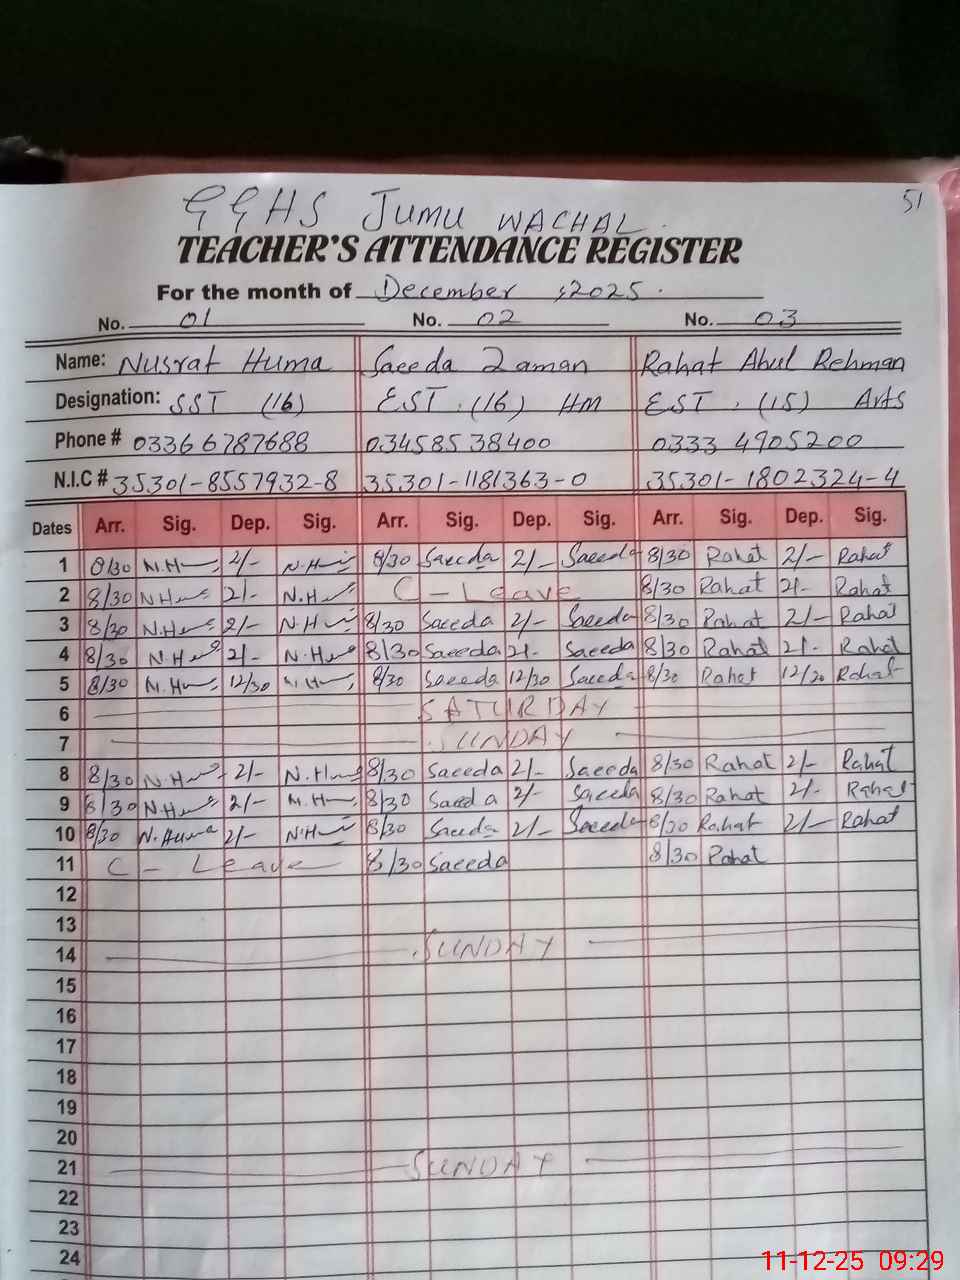 51
GGHS JUMU WACHAL.
TEACHER'S ATTENDANCE REGISTER
For the month of December ,2025.
No. 01 No. 02 No. 03
Name: Nusrat Huma Saeeda Zaman Rahat Abul Rehman
Designation: SST (16) EST. (16) HM EST. (15) Arts
Phone # 0336 6787688 03458538400 0333 4905200
N.I.C # 35301-8557932-8 35301-1181363-0 35301-1802324-4
Dates Arr. Sig. Dep. Sig. Arr. Sig. Dep. Sig. Arr. Sig. Dep. Sig.
1 8/30 N.Hu 2/- N.Hu 8/30 Saeeda 2/- Saeeda 8/30 Rahat 2/- Rahat
2 8/30 N.Hu 2/- N.Hu C - Leave 8/30 Rahat 2/- Rahat
3 8/30 N.Hu 2/- N.Hu 8/30 Saeeda 2/- Saeeda 8/30 Rahat 2/- Rahat
4 8/30 N.Hu 2/- N.Hu 8/30 Saeeda 2/- Saeeda 8/30 Rahat 2/- Rahat
5 8/30 N.Hu 12/30 N.Hu 8/30 Saeeda 12/30 Saeeda 8/30 Rahat 12/20 Rahat
6 SATURDAY
7 SUNDAY
8 8/30 N.Hu 2/- N.Hu 8/30 Saeeda 2/- Saeeda 8/30 Rahat 2/- Rahat
9 8/30 N.Hu 2/- N.Hu 8/30 Saeeda 2/- Saeeda 8/30 Rahat 2/- Rahat
10 8/30 N.Huma 2/- N.Hu 8/30 Saeeda 2/- Saeeda 8/30 Rahat 2/- Rahat
11 C - Leave 8/30 Saeeda 8/30 Rahat
12
13
14 SUNDAY
15
16
17
18
19
20
21 SUNDAY
22
23
24
11-12-25 09:29